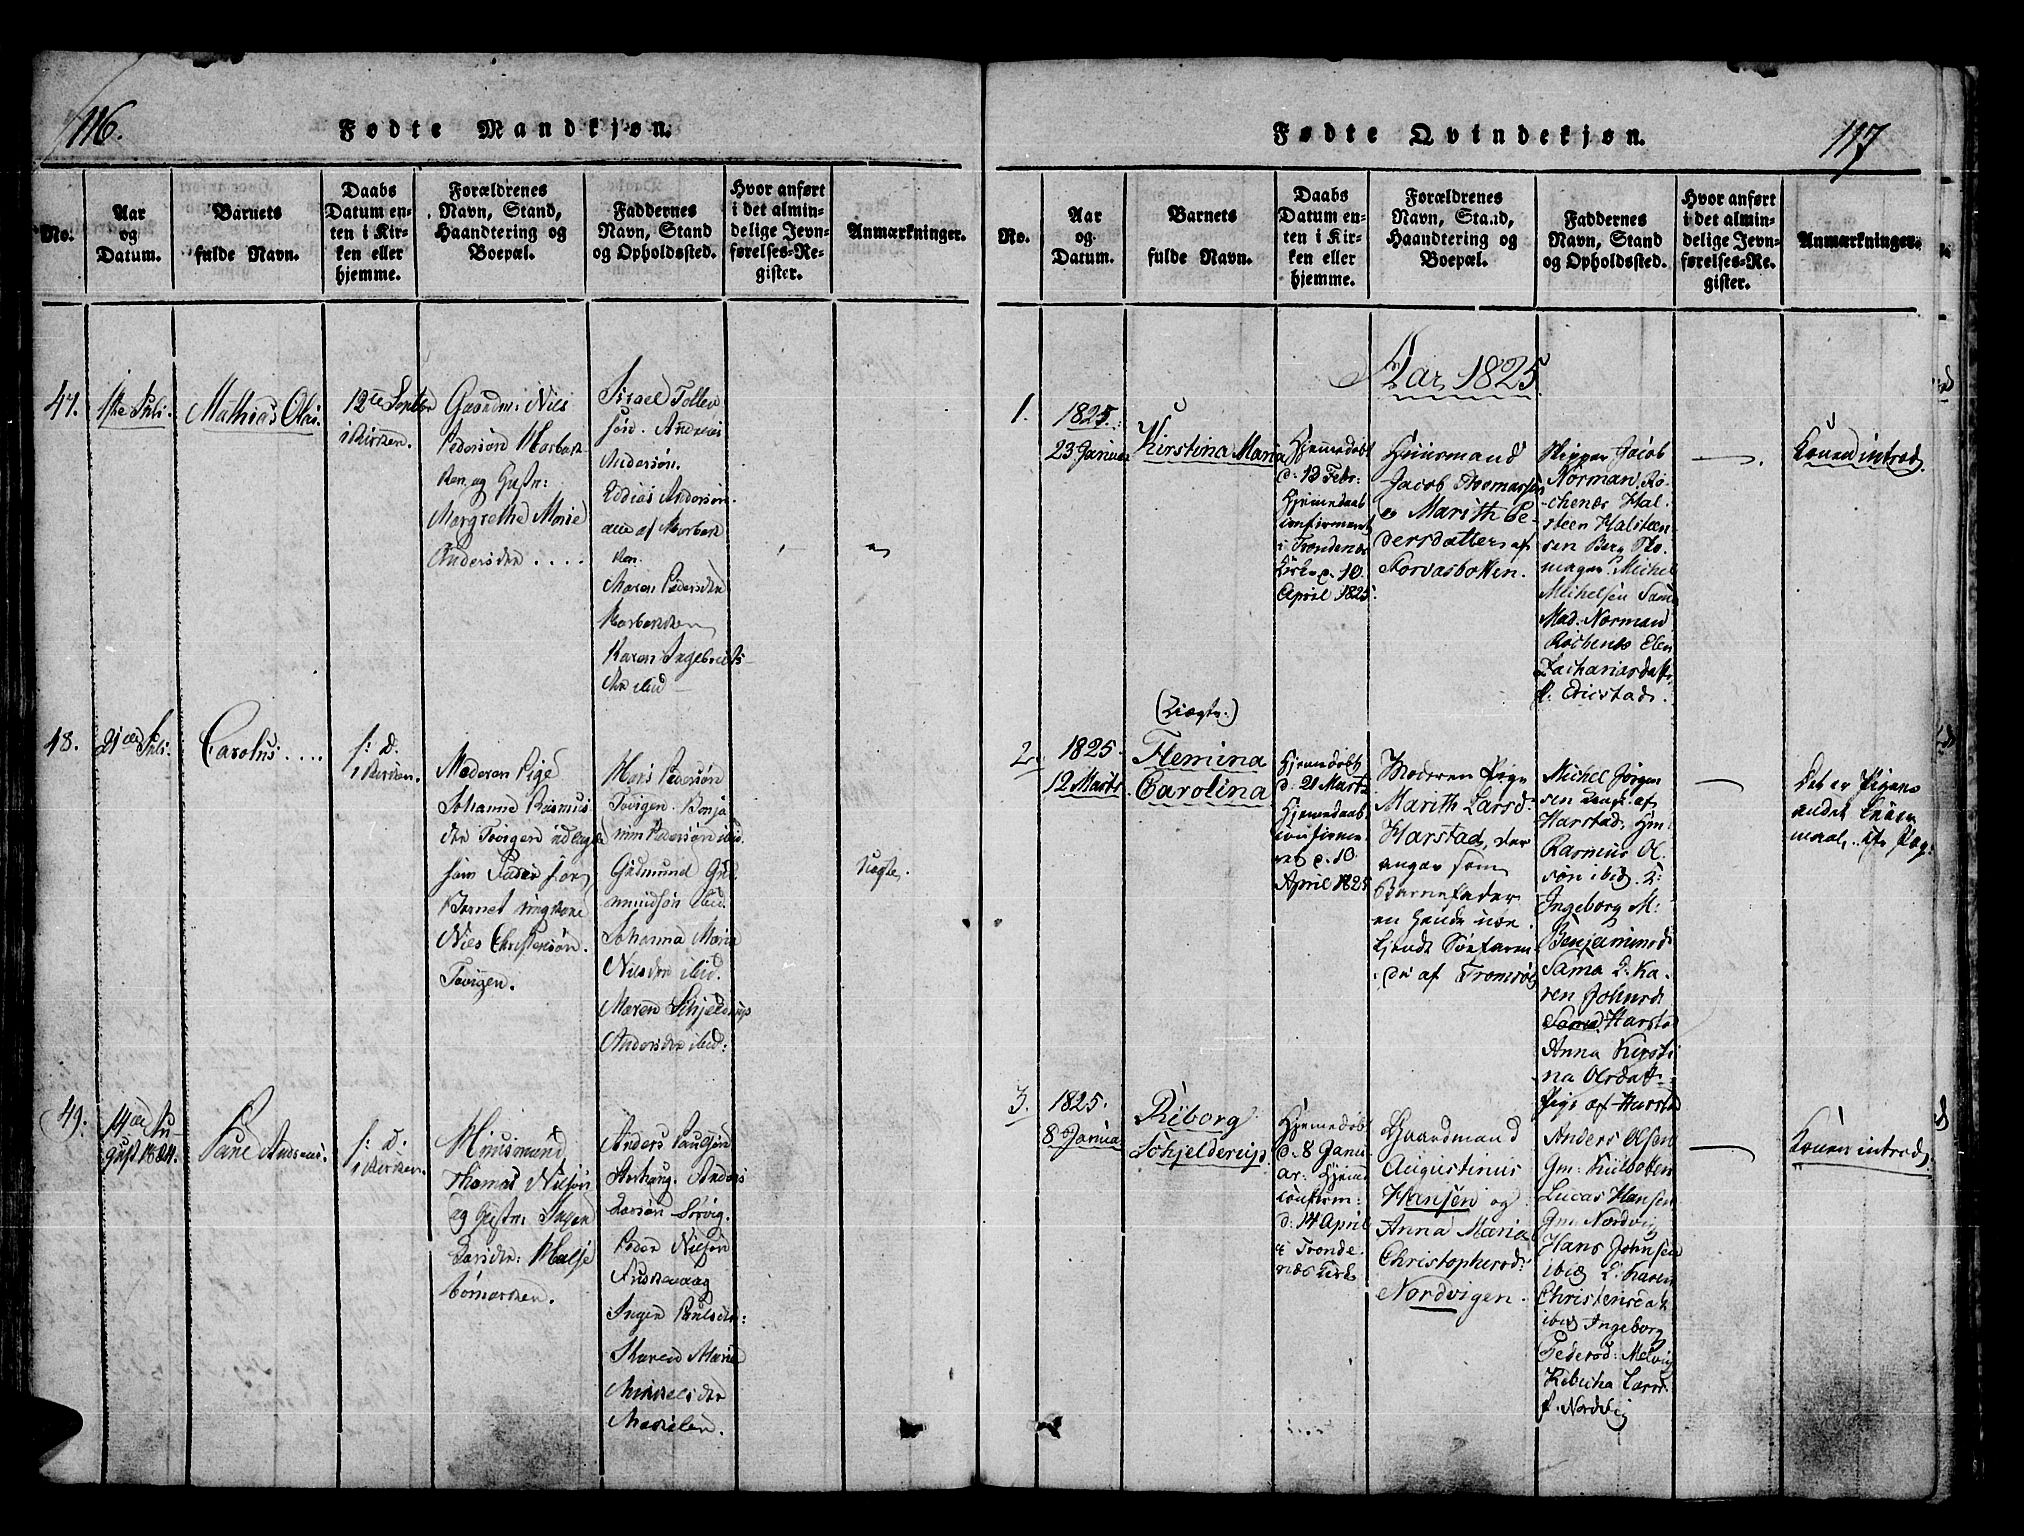 116.
Fødte Mandkjøn.
No.
Aar
og
Datum.
Barnets
fulde Navn.
Daabs
Datum en-
ten i Kir-
ken eller
hjemme.
Forældrenes
Navn, Stand,
Haandtering og
Boepæl.
Faddernes
Navn, Stand
og Opholdssted.
Hvor anført
i det almin-
delige Jevn-
førelses-Re-
gister.
Anmærkninger.
47.
1ste Juli.
Mathias Olai.
12te Septbr
i Kirken.
Gaardm: Niels
Pedersøn
og
Margrethe Marie
Andersdtr ....
Israel Tollev
søn. Andreas
Andersøn.
Andersøn.
alle af
Maren Pedersdtr
Karen Ingebrigts-
dtr ibid
48.
21de Juli.
Carolus ....
s: D.
i Kirken.
Moderen Pige
Johanna Rasmus
dtr Tovigen udlagde
som Fader for
Barnet ungkarl
Niels Christensøn.
Tovigen.
Hans Pedersøn
Tovigen. Benja
min Pedersøn ibid.
Gudmund Gud
mundsøn ibid.
Johanna Maria
Nilsdtr ibid.
Maren Schjelderup
Andersdtr ibid:
Uægte.
49.
14de Au-
gust 1824.
Andreas.
s: D.
i Kirken.
Huusmand
Thomas Nilsøn
og Hustr: Inger
Larsdtr:
Anders Paulsøn
Aarhaug. Anders
Larsøn Sørvig.
Peder Nilsøn
Inger Poulsdtr:
Karen Maria
Mikkelsdtr
117
Fødte Qvindekjøn.
No.
Aar
og
Datum.
Barnets
fulde Navn.
Daabs
Datum en-
ten i Kir-
ken eller
hjemme.
Forældrenes
Navn, Stand,
Haandtering og
Boepæl.
Faddernes
Navn, Stand
og Opholdssted.
Hvor anført
i det almin-
delige Jevn-
førelses-Re-
gister.
Anmærkninger.
Aar 1825.
1.
1825.
23 Januar
Kirstina Maria
Hjemmedøbt
d: 13 Febr:
Hjemmedaab
confirmeret
i Trondenæs
Kirke d. 10
April 1825.
Huusmand
Jacob Thomassen
og Marith Pe-
dersdatter af
Storvasbotten.
Skipper Jacob
Norman, Rø-
chenæs Hal-
steen Halsteen-
sen Berg Sko-
mager Michel
Michelsen Sama
Mad. Norman
Røchenæs Elen
Zachariasdattr
P. Ericstad.
Konen introd.
2.
1825.
12 Marts
(Uægte.)
Flemina
Carolina
Hjemmedøbt
d. 21 Marts
Hjemmedaab
confirme-
ret d. 10
April 1825
Moderen Pige
Marith Larsd:
Harstad, der
angav som
Barnefader
en hende ube-
kjendt Søefaren-
de af Tromsøe
Michel Jørgen
sen Dreng af
Harstad, Hm:
Rasmus Ol-
søn ibid. 2:
Ingeborg M:
Benjaminsd:
Sama 2. Ka-
ren Johnsd:
Sama Harstad
Anna Kirsti-
na Olsdatt-
Pige af Harstad
Det er Pigens
andet Leier-
maal,
3.
1825.
8 Januar
Riborg
Schjelderup.
Hjemmedøbt
d. 8 Janu-
ar. Hjemd
confirm:
d: 14 April
i Tronde-
næs Kirk
Gaardmand
Augustinus
Hansen og
Anna Maria
Christophersd:
Nordvigen.
Anders Olsen
Gm: Kulbotten
Lucas Hansen
Gm: Nordvig
Hans Johnsen
ibid 2. Karen
Christensdatt
ibid Ingeborg
Pedersd: Melvig
Rebecha Larsd:
P. Nordvig
Konen introd.